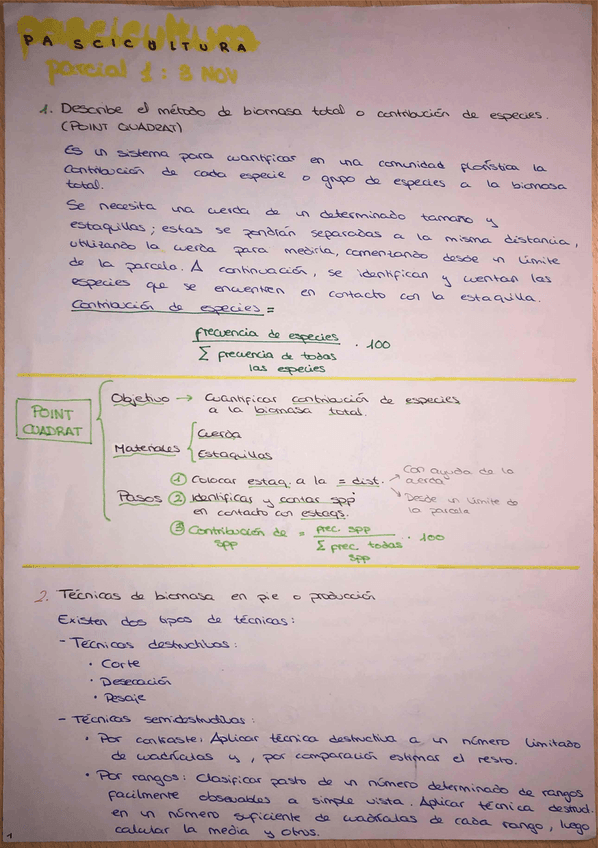 PASCICULTURA
parcial 1: 3 NOV
1. Describe el método de biomasa total o contribución de especies.
(POINT QUADRAT)
Es un sistema para cuantificar en una comunidad florística la
contribución de cada especie o grupo de especies a la biomasa
total.
Se necesita una cuerda de un determinado tamaño y
estaquillas; estas se pondrán separadas a la misma distancia,
utilizando la cuerda para medirla, comenzando desde un límite
de la parcela. A continuación, se identifican y cuentan las
especies que se encuentren en contacto con la estaquilla.
Contribución de especies =
frecuencia de especies
Σ frecuencia de todas
las especies
· 100
POINT
CUADRAT
Objetivo → Cuantificar contribución de especies
a la biomasa total.
Materiales
Cuerda
Estaquillas
Pasos
① Colocar estaq. a la = dist.
Con ayuda de la
cuerda
Desde un límite de
la parcela
② Identificar y contar spp
en contacto con estaqs.
③ Contribución de =
spp
frec. spp
Σ frec. todas
spp
· 100
2. Técnicas de biomasa en pie o producción
Existen dos tipos de técnicas:
- Técnicas destructivas:
• Corte
• Desecación
• Pesaje
- Técnicas semidestructivas:
• Por contraste: Aplicar técnica destructiva a un número limitado
de cuadrículas y, por comparación estimar el resto.
• Por rangos: Clasificar pasto de un número determinado de rangos
facilmente observables a simple vista. Aplicar técnica destruct.
en un número suficiente de cuadrículas de cada rango, luego
calcular la media y otros.
1